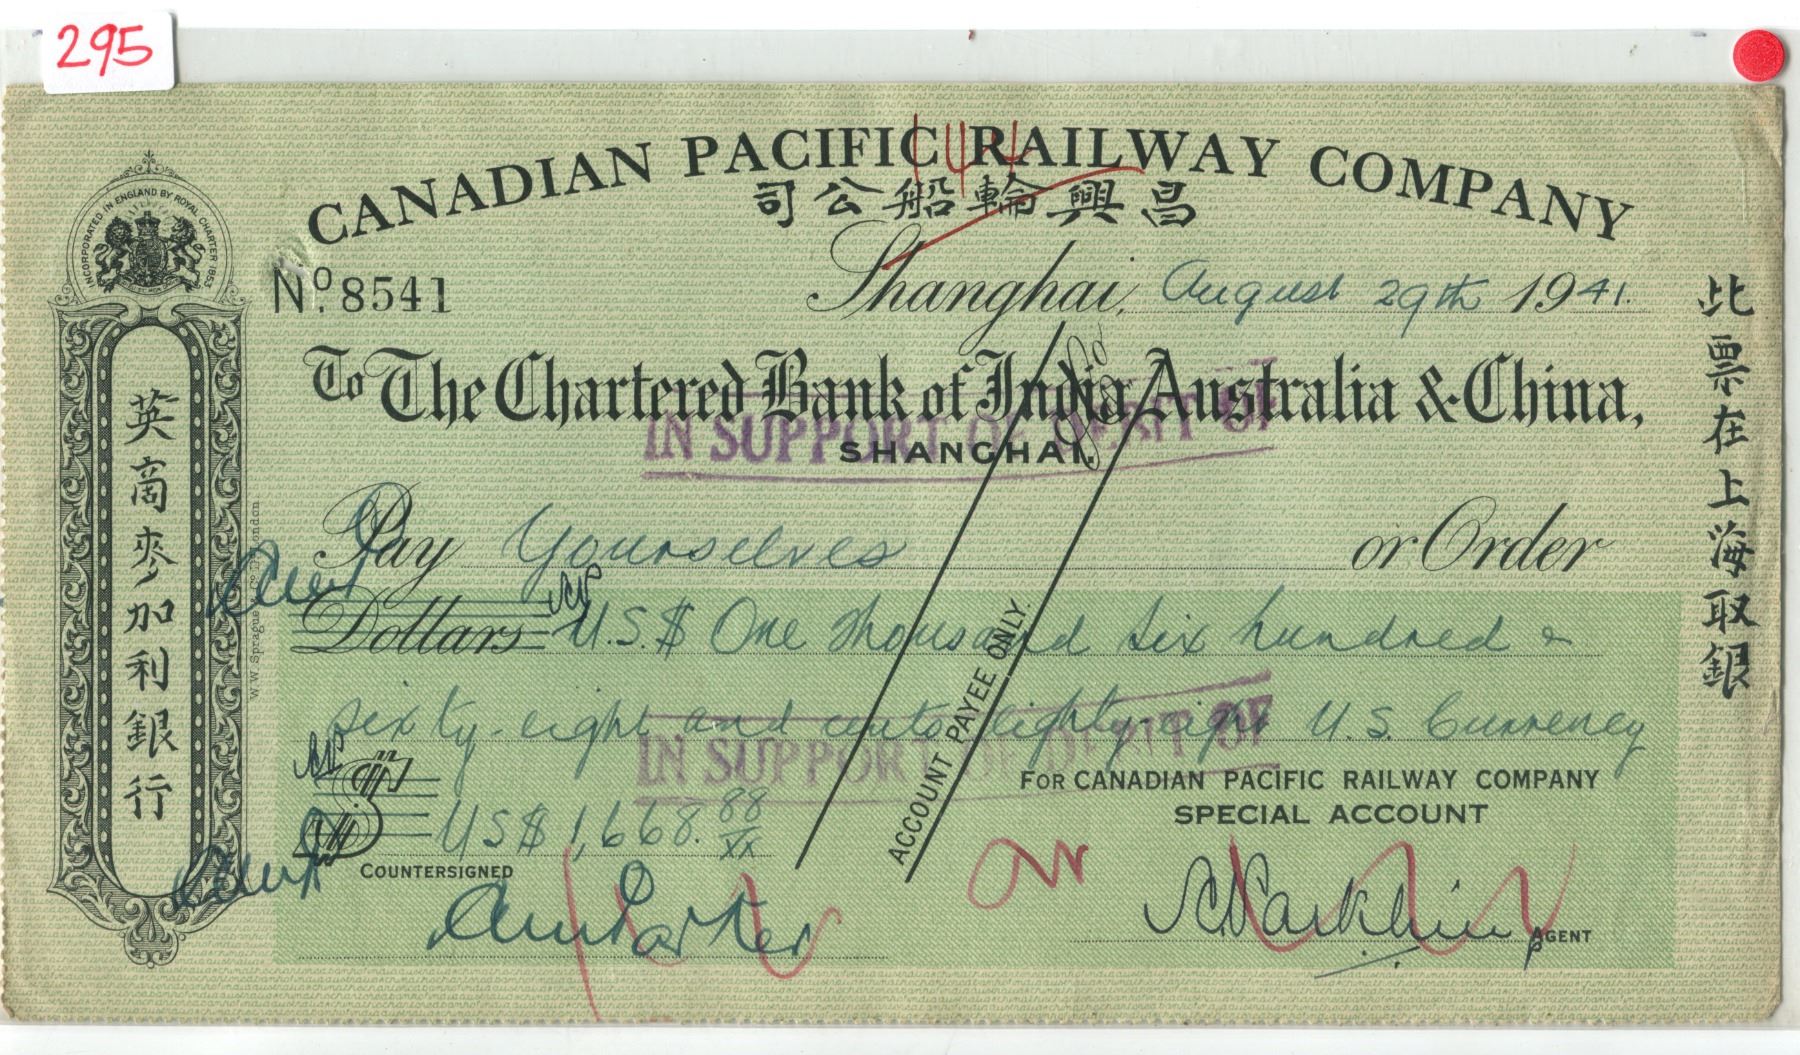 295
CANADIAN PACIFIC RAILWAY COMPANY
司公船輪興昌
INCORPORATED IN ENGLAND BY ROYAL CHARTER 1853
No. 8541
Shanghai, August 29th 1941.
To The Chartered Bank of India, Australia & China,
IN SUPPORT OF DEBIT OF
SHANGHAI.
Pay Yourselves or Order
Dollars U.S.$ One thousand six hundred &
sixty-eight and cents eighty-eight U.S. Currency
IN SUPPORT OF DEBIT OF
$ US$ 1,668.88/xx
FOR CANADIAN PACIFIC RAILWAY COMPANY
SPECIAL ACCOUNT
COUNTERSIGNED
AGENT
ACCOUNT PAYEE ONLY.
英商麥加利銀行
此票在上海取銀
W.W. Sprague London